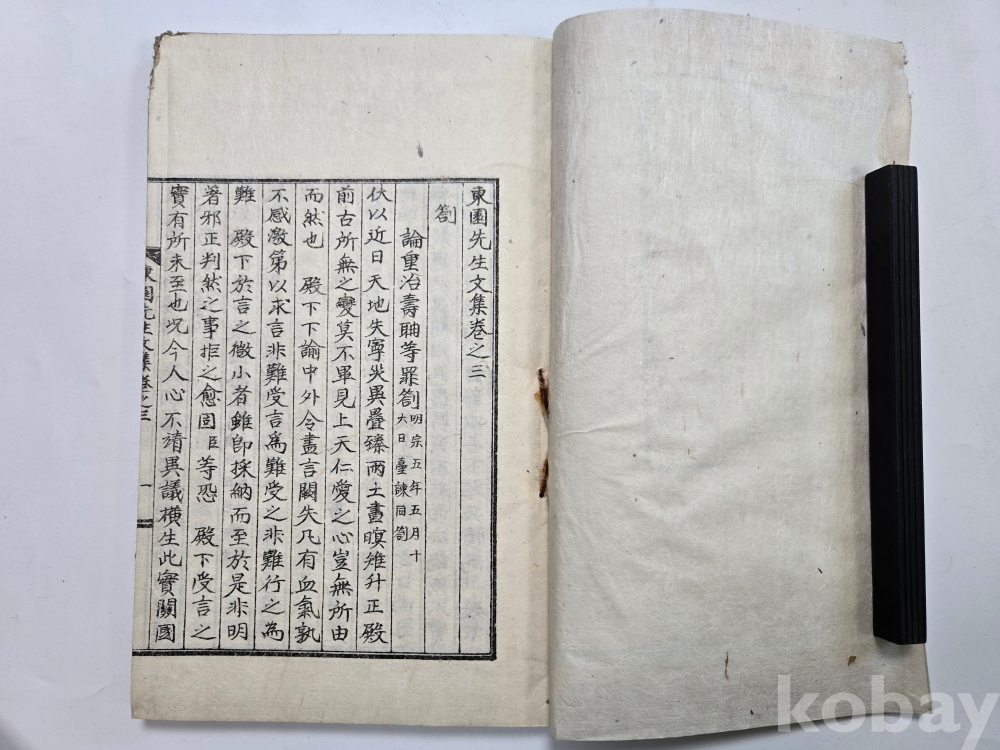 東園先生文集卷之三
劄
論重治壽聃等罪劄
明宗五年五月十
六日臺諫同劄
伏以近日天地失寧災異疊臻雨土晝暝雉升正殿
前古所無之變莫不畢見上天仁愛之心豈無所由
而然也 殿下下諭中外令盡言闕失凡有血氣孰
不感激第以求言非難受言爲難受之非難行之爲
難 殿下於言之微小者雖卽採納而至於是非明
著邪正判然之事拒之愈固臣等恐 殿下受言之
實有所未至也况今人心不靖異議橫生此實關國
東園先生文集卷之三
一
kobay